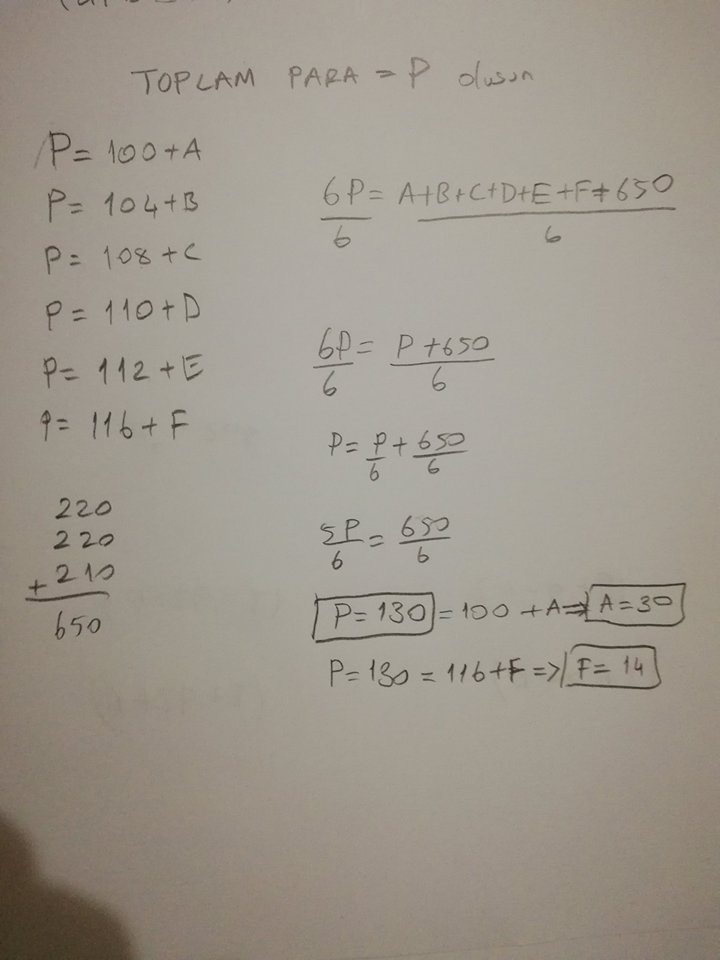 TOPLAM PARA = P olsun
P = 100+A
P = 104+B
P = 108+C
P = 110+D
P = 112+E
P = 116+F
220
220
+ 210
650
6P/6 = A+B+C+D+E+F+650/6
6P/6 = P+650/6
P = P/6 + 650/6
5P/6 = 650/6
P = 130 = 100 + A => A = 30
P = 130 = 116+F => F = 14